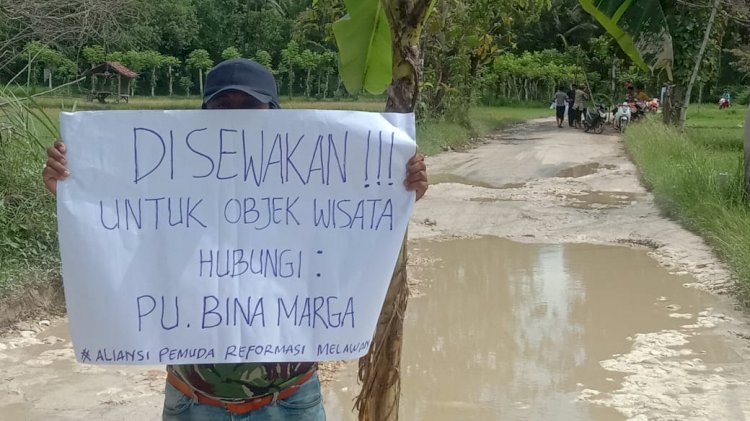 DISEWAKAN !!!
UNTUK OBJEK WISATA
HUBUNGI :
PU. BINA MARGA
* ALIANSI PEMUDA REFORMASI MELAWAN